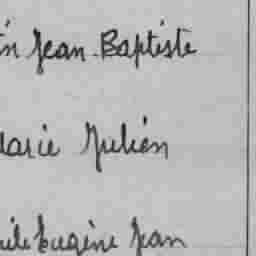 in Jean-Baptiste
Marie Julien
Eugène Jean